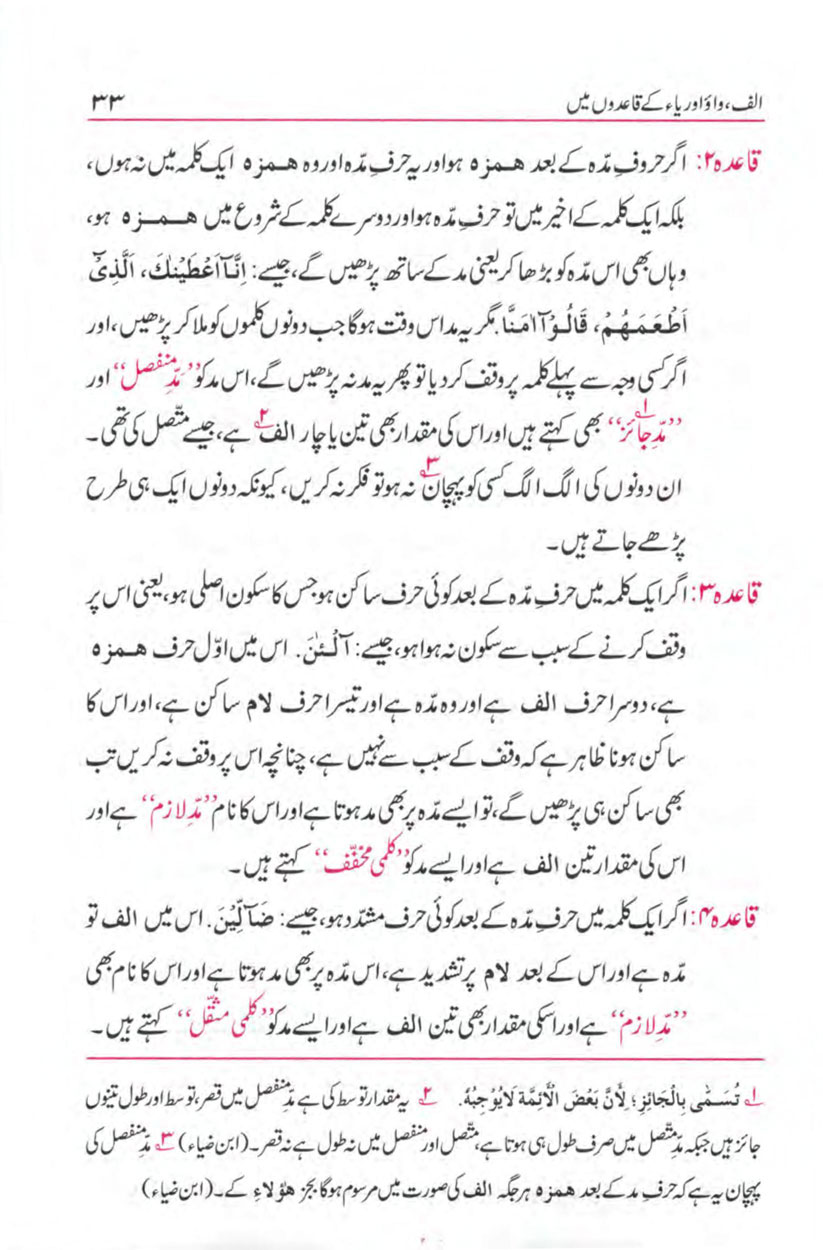 الف، واؤ اور یاء کے قاعدوں میں ۳۳
قاعدہ۲: اگر حروفِ مدّہ کے بعد ہمزہ ہو اور یہ حرفِ مدّہ اور وہ ہمزہ ایک کلمہ میں نہ ہوں،
بلکہ ایک کلمہ کے اخیر میں تو حرفِ مدّہ ہو اور دوسرے کلمہ کے شروع میں ہمزہ ہو،
وہاں بھی اس مدّہ کو بڑھا کر یعنی مد کے ساتھ پڑھیں گے، جیسے: اِنَّآ اَعْطَیْنٰكَ، اَلَّذِیْٓ
اَطْعَمَهُمْ، قَالُوْٓا اٰمَنَّا. مگر یہ مد اس وقت ہوگا جب دونوں کلموں کو ملا کر پڑھیں، اور
اگر کسی وجہ سے پہلے کلمہ پر وقف کر دیا تو پھر یہ مد نہ پڑھیں گے، اس مد کو ”مدِّ منفصل“ اور
”مدِّ جائز“ ۱؎ بھی کہتے ہیں اور اس کی مقدار بھی تین یا چار الف ۲؎ ہے، جیسے متّصل کی تھی۔
ان دونوں کی الگ الگ کسی کو پہچان ۳؎ نہ ہو تو فکر نہ کریں، کیونکہ دونوں ایک ہی طرح
پڑھے جاتے ہیں۔
قاعدہ۳: اگر ایک کلمہ میں حرفِ مدّہ کے بعد کوئی حرف ساکن ہو جس کا سکون اصلی ہو، یعنی اس پر
وقف کرنے کے سبب سے سکون نہ ہوا ہو، جیسے: آلْـٰٔنَ. اس میں اوّل حرف ہمزہ
ہے، دوسرا حرف الف ہے اور وہ مدّہ ہے اور تیسرا حرف لام ساکن ہے، اور اس کا
ساکن ہونا ظاہر ہے کہ وقف کے سبب سے نہیں ہے، چنانچہ اس پر وقف نہ کریں تب
بھی ساکن ہی پڑھیں گے، تو ایسے مدّہ پر بھی مد ہوتا ہے اور اس کا نام ”مدِّ لازم“ ہے اور
اس کی مقدار تین الف ہے اور ایسے مد کو ”کلمی مخفّف“ کہتے ہیں۔
قاعدہ۴: اگر ایک کلمہ میں حرفِ مدّہ کے بعد کوئی حرف مشدّد ہو، جیسے: ضَآلِّیْنَ. اس میں الف تو
مدّہ ہے اور اس کے بعد لام پر تشدید ہے، اس مدّہ پر بھی مد ہوتا ہے اور اس کا نام بھی
”مدِّ لازم“ ہے اور اسکی مقدار بھی تین الف ہے اور ایسے مد کو ”کلمی مثقّل“ کہتے ہیں۔
۱؎ تُسَمّٰی بِالْجَائِزِ؛ لِأَنَّ بَعْضَ الْأَئِمَّة لَا یُوْجِبُهٗ. ۲؎ یہ مقدار توسط کی ہے مدِّ منفصل میں قصر، توسط اور طول تینوں
جائز ہیں جبکہ مدِّ متّصل میں صرف طول ہی ہوتا ہے، متّصل اور منفصل میں نہ طول ہے نہ قصر۔ (ابن ضیاء) ۳؎ مدِّ منفصل کی
پہچان یہ ہے کہ حرفِ مد کے بعد ہمزہ ہر جگہ الف کی صورت میں مرسوم ہوگا بجز هٰؤُلَاءِ کے۔ (ابن ضیاء)